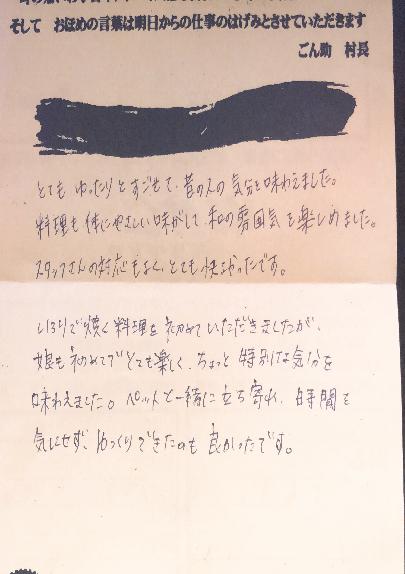 そして　おほめの言葉は明日からの仕事のはげみとさせていただきます
ごん助　村長
とても ゆったりとすごせて、昔の人の気分を味わえました。
料理も体にやさしい味がして、和の雰囲気を楽しめました。
スタッフさんの対応もよく、とても快よかったです。
いろりで焼く料理を初めていただきましたが、
娘も初めてでとても楽しく、ちょっと特別な気分を
味わえました。ペットと一緒に立ち寄れ、時間を
気にせず、ゆっくりできたのも良かったです。